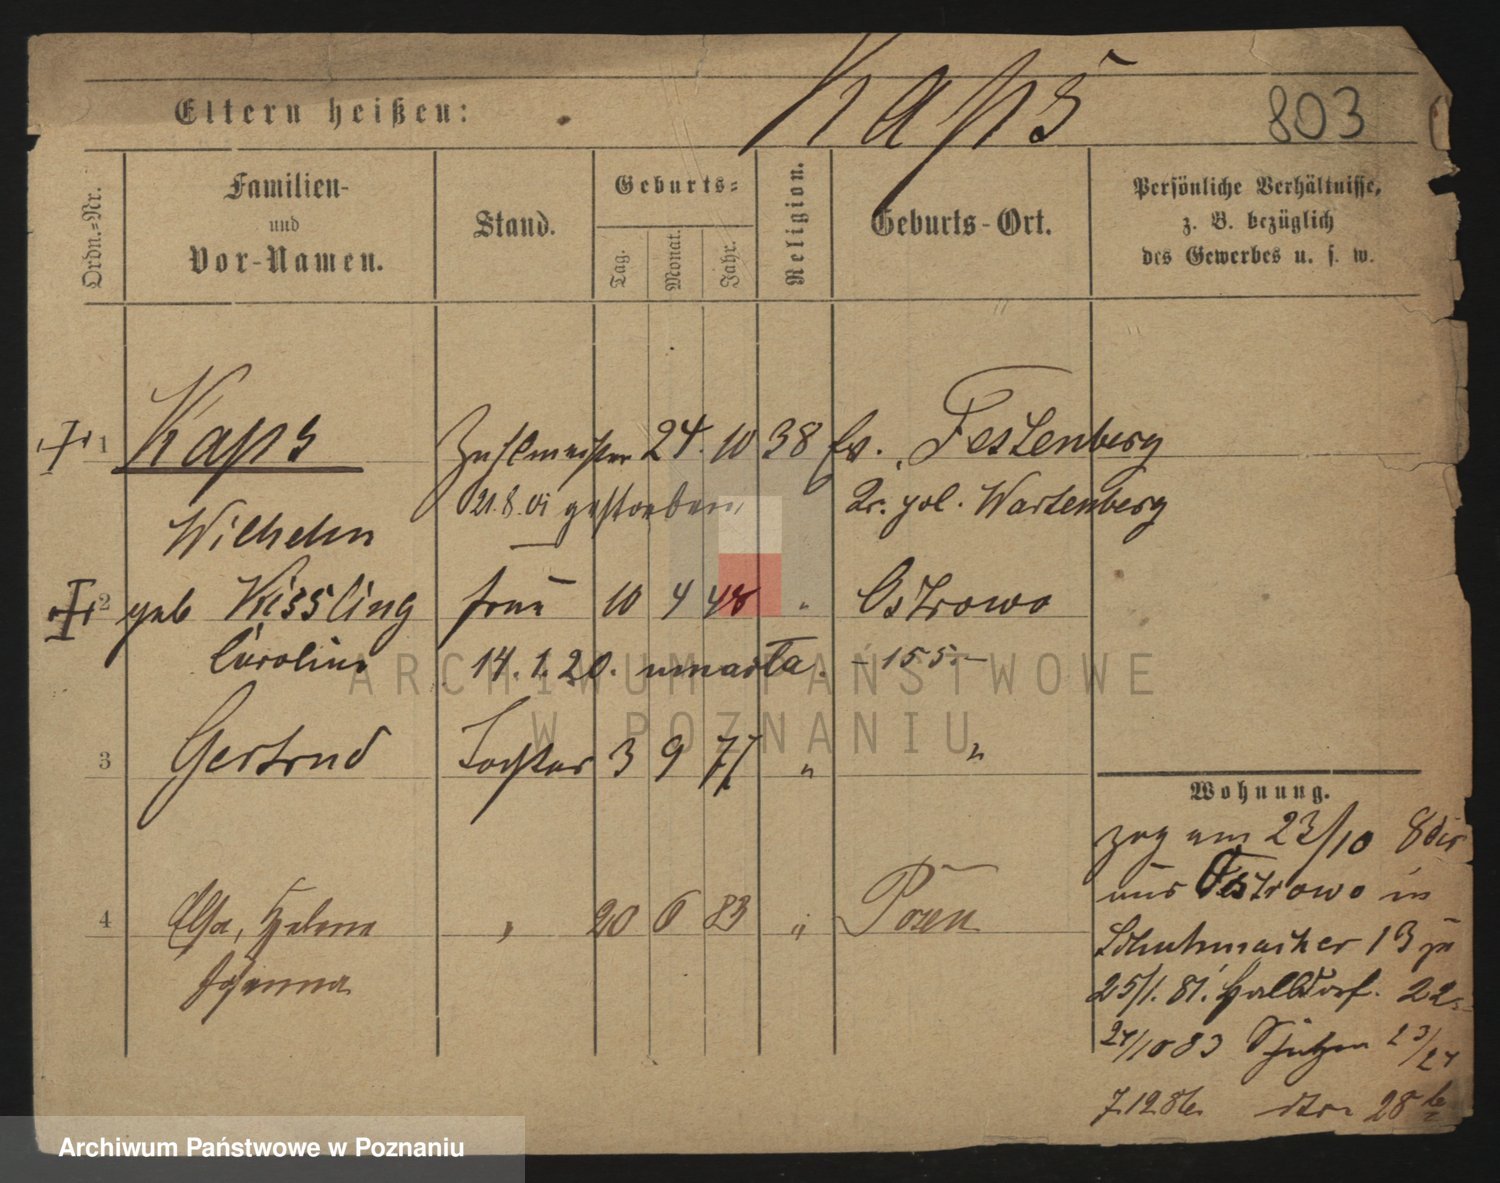 Kaps 803
Eltern heißen:
Ordn.-Nr.
Familien-
und
Vor-Namen.
Stand.
Geburts-
Tag.
Monat.
Jahr.
Religion.
Geburts-Ort.
Persönliche Verhältnisse,
z. B. bezüglich
des Gewerbes u. s. w.
1 Kaps Zahlmeister 24. 10 38 Ev. Festenberg
Wilhelm 21.8.01 gestorben Kr. pol. Wartenberg
2 geb Kissling Frau 10 4 48 " Ostrowo
Caroline 14.1.20. umarła. -155.-
3 Gertrud Tochter 3 9 77 " "
4 Elsa, Helene " 20 6 83 " Posen
Johanna
Wohnung.
zog am 23/10 80 in
aus Ostrowo in
Schuhmacher 13 zu
25/1. 81. Halbdorf. 22
24/10 83 Schützen 23/24
7.12.86. 28
ARCHIWUM PAŃSTWOWE
W POZNANIU
Archiwum Państwowe w Poznaniu